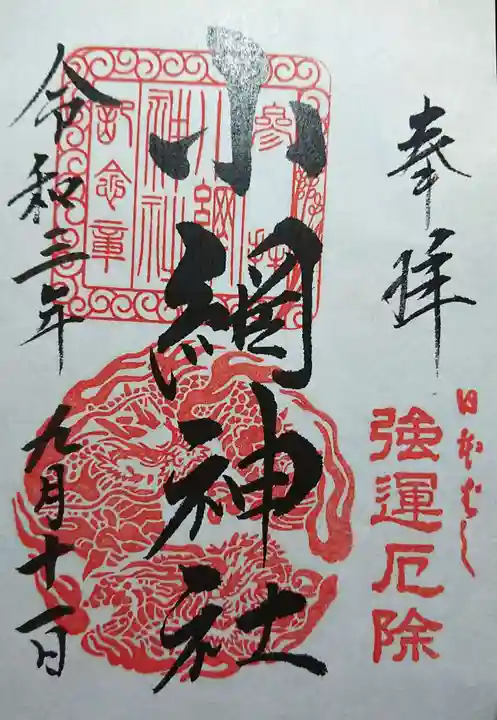 奉拝
日本ばし
強運厄除
小網神社
参拝
小網神社
記念章
令和三年 九月十一日